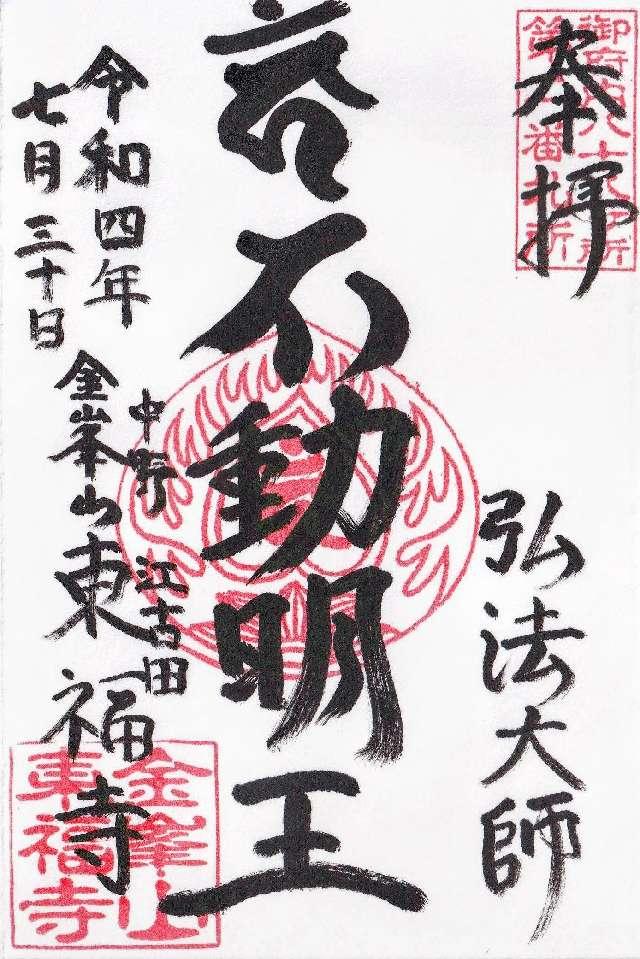 奉拝
御府内八十八ヶ所
番札所
弘法大師
不動明王
令和四年
七月三十日
中野江古田
金峯山東福寺
金峯山
東福寺